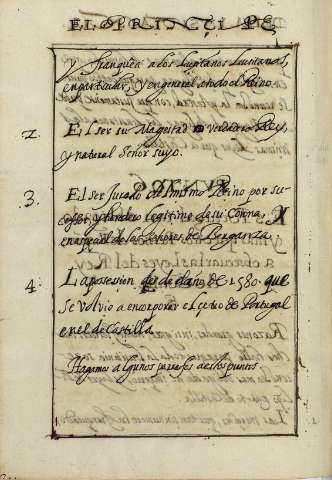 EL PRINCIPE
y franquea a los Lusitanos,
en particular, y en general a todo el Reino
2. El ser su Magestad verdadero Rey,
y natural Señor suyo.
3. El ser Jurado del mismo Reino por su-
cesor, y heredero legitimo de su Corona,
de los Señores de Berganza.
4. La possesion desde el año de 1580. que
se volvio a encorporar el cetro de Portugal
en el de Castilla
Hagamos algunos a dichos puntos